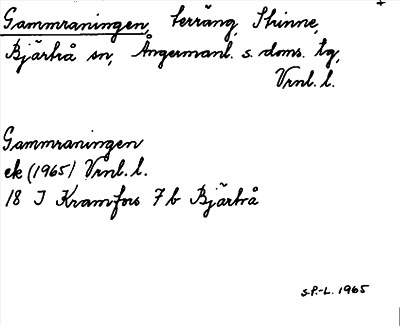 Gammraningen, terräng, Skinne,
Bjärtrå sn, Ångermanl. s. doms. tg,
Vrnl. l.
Gammraningen
ek (1965) Vrnl. l.
18 I Kramfors 7 b Bjärtrå
S.P.-L. 1965